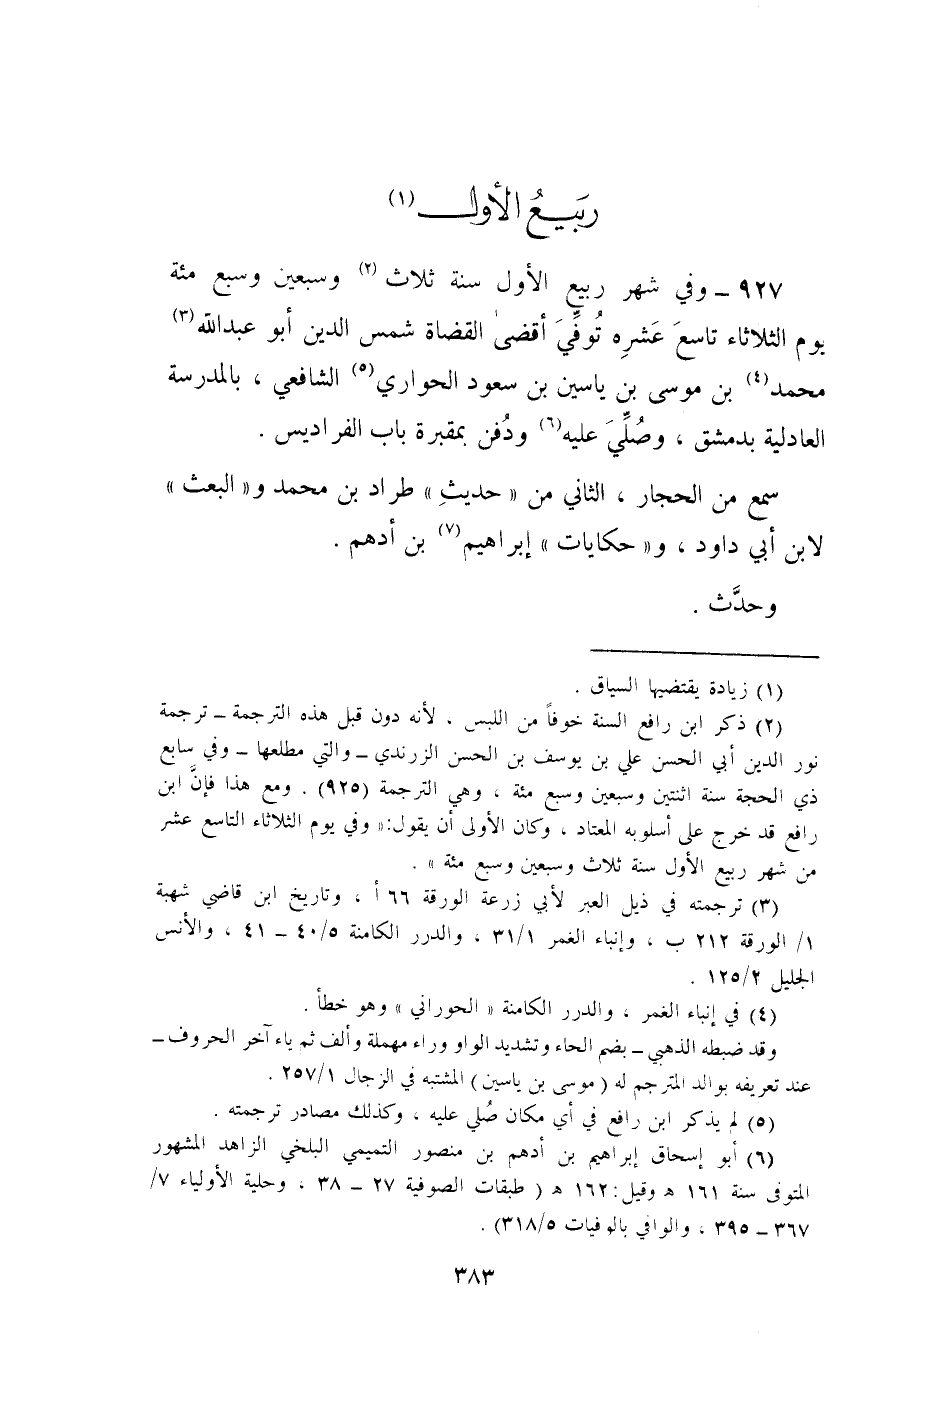 ربيعُ الأول (١)
٩٢٧ ـ وفي شهر ربيع الأول سنة ثلاث (٢) وسبعين وسبع مئة
يوم الثلاثاء تاسعَ عَشرِه تُوفِّيَ أقضىٰ القضاة شمس الدين أبو عبدالله (٣)
محمد (٤) بن موسى بن ياسين بن سعود الحواري (٥) الشافعي ، بالمدرسة
العادلية بدمشق ، وصُلِّيَ عليه (٦) ودُفن بمقبرة باب الفراديس .
سمع من الحجار ، الثاني من « حديثِ » طراد بن محمد و« البعث »
لابن أبي داود ، و« حكايات » إبراهيم (٧) بن أدهم .
وحدَّث .
(١) زيادة يقتضيها السياق .
(٢) ذكر ابن رافع السنة خوفاً من اللبس . لأنه دون قبل هذه الترجمة ـ ترجمة
نور الدين أبي الحسن علي بن يوسف بن الحسن الزرندي ـ والتي مطلعها ـ وفي سابع
ذي الحجة سنة اثنتين وسبعين وسبع مئة ، وهي الترجمة (٩٢٥) . ومع هذا فإنَّ ابن
رافع قد خرج على أسلوبه المعتاد ، وكان الأولى أن يقول: « وفي يوم الثلاثاء التاسع عشر
من شهر ربيع الأول سنة ثلاث وسبعين وسبع مئة » .
(٣) ترجمته في ذيل العبر لأبي زرعة الورقة ٦٦ أ ، وتاريخ ابن قاضي شهبة
١/ الورقة ٢١٢ ب ، وإنباء الغمر ٣١/١ ، والدرر الكامنة ٤٠/٥ ـ ٤١ ، والأنس
الجليل ١٢٥/٢ .
(٤) في إنباء الغمر ، والدرر الكامنة « الحوراني » وهو خطأ .
وقد ضبطه الذهبي ـ بضم الحاء وتشديد الواو وراء مهملة وألف ثم ياء آخر الحروف ـ
عند تعريفه بوالد المترجم له ( موسى بن ياسين ) المشتبه في الرجال ٢٥٧/١ .
(٥) لم يذكر ابن رافع في أي مكان صُلي عليه ، وكذلك مصادر ترجمته .
(٦) أبو إسحاق إبراهيم بن أدهم بن منصور التميمي البلخي الزاهد المشهور
المتوفى سنة ١٦١ ه وقيل: ١٦٢ ه ( طبقات الصوفية ٢٧ ـ ٣٨ ، وحلية الأولياء ٧/
٣٦٧ ـ ٣٩٥ ، والوافي بالوفيات ٣١٨/٥) .
٣٨٣